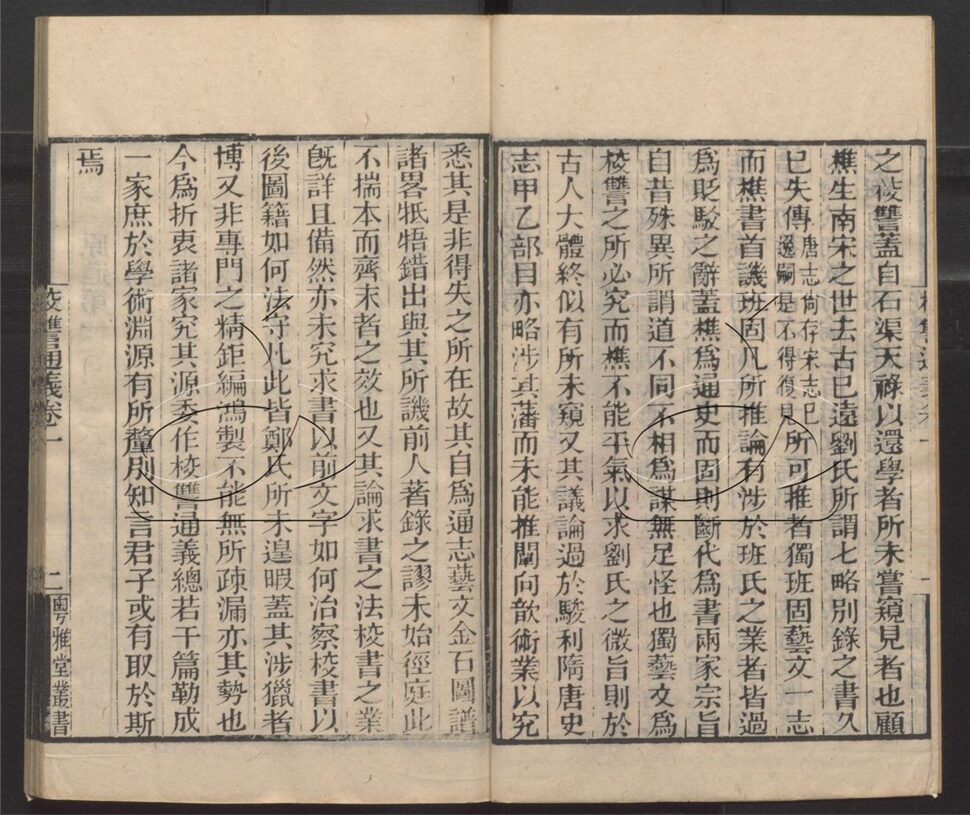 之校讐蓋自石渠天祿以還學者所未嘗窺見者也顧
樵生南宋之世去古已遠劉氏所謂七略別錄之書久
已失傳唐志尚存宋志已逸嗣是不得復見所可推者獨班固藝文一志
而樵書首譏班固凡所推論有涉於班氏之業者皆過
爲貶駮之辭蓋樵爲通史而固則斷代爲書兩家宗旨
自昔殊異所謂道不同不相爲謀無足怪也獨藝文爲
校讐之所必究而樵不能平氣以求劉氏之微旨則於
古人大體終似有所未窺又其議論過於駿利隋唐史
志甲乙部目亦略涉其藩而未能推闡向歆術業以究
悉其是非得失之所在故其自爲通志藝文金石圖譜
諸畧牴牾錯出與其所譏前人著錄之謬未始徑庭此
不揣本而齊末者之效也又其論求書之法校書之業
旣詳且備然亦未究求書以前文字如何治察校書以
後圖籍如何法守凡此皆鄭氏所未遑暇蓋其涉獵者
博又非專門之精鉅編鴻製不能無所疎漏亦其勢也
今爲折衷諸家究其源委作校讐通義總若干篇勒成
一家庶於學術淵源有所釐別知言君子或有取於斯
焉
校讐通義卷一
二
粵雅堂叢書